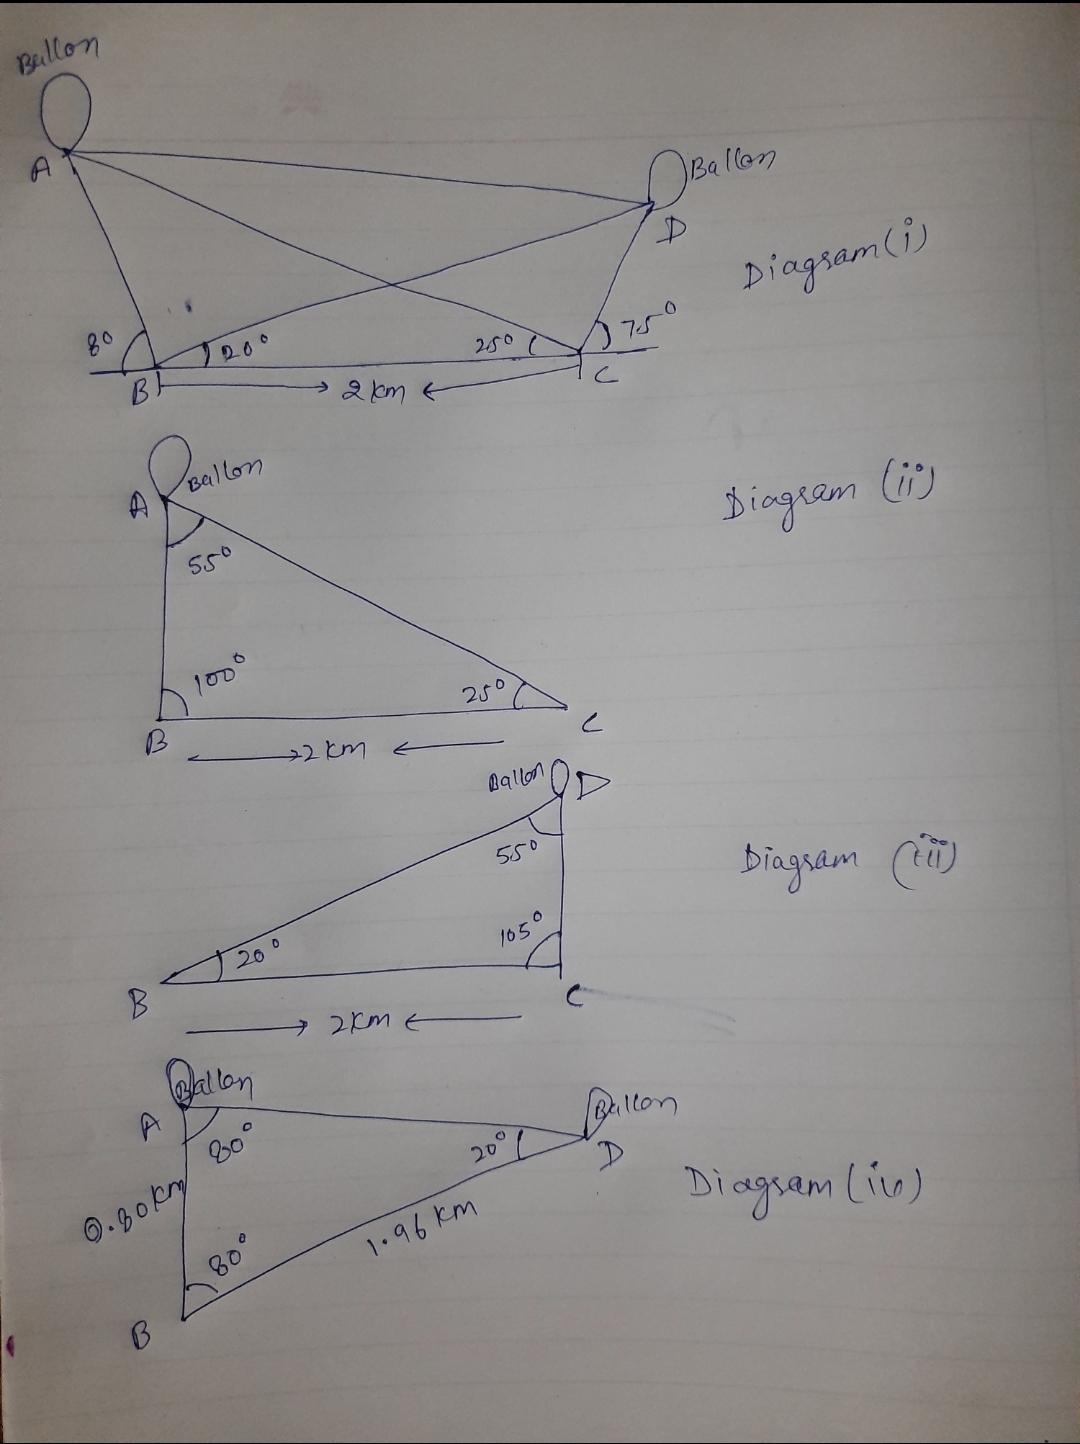 Ballon
A
Ballon
D
Diagram (i)
80
20°
25°
75°
B
2 km
C
Ballon
A
Diagram (ii)
55°
100°
25°
B
2 km
C
Ballon
D
55°
Diagram (iii)
105°
20°
B
C
2 km
Ballon
A
Ballon
80°
20°
D
Diagram (iv)
0.80 km
1.96 km
80°
B